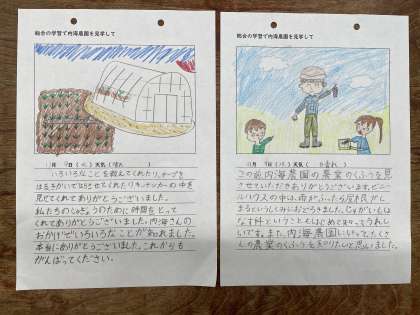 総合の学習で内海農園を見学して
11月 9日(水)天気(晴れ)
いろいろなことを教えてくれたり、チーブを
はるきかいではらせてくれたり、キッチンカーの中を
見せてくれてありがとうございました。
私たちのじゅぎょうのために時間をとって
くれてありがとうございました。内海さんの
おかげでいろいろなことが知れました。
本当にありがとうございました。これからも
がんばってください。
総合の学習で内海農園を見学して
11月 9日(水)天気(晴れ)
この前、内海農園の農業のくふうを見
させていただきありがとうございます。ビニー
ルハウスの中は、雨がふったら屋根が
まるというしくみにおどろきました。じゃがいもは
なす科ということをはじめて知ってうれし
いです。また、内海農園にいってたくさ
んの農業のくふうを知りたいと思いました。